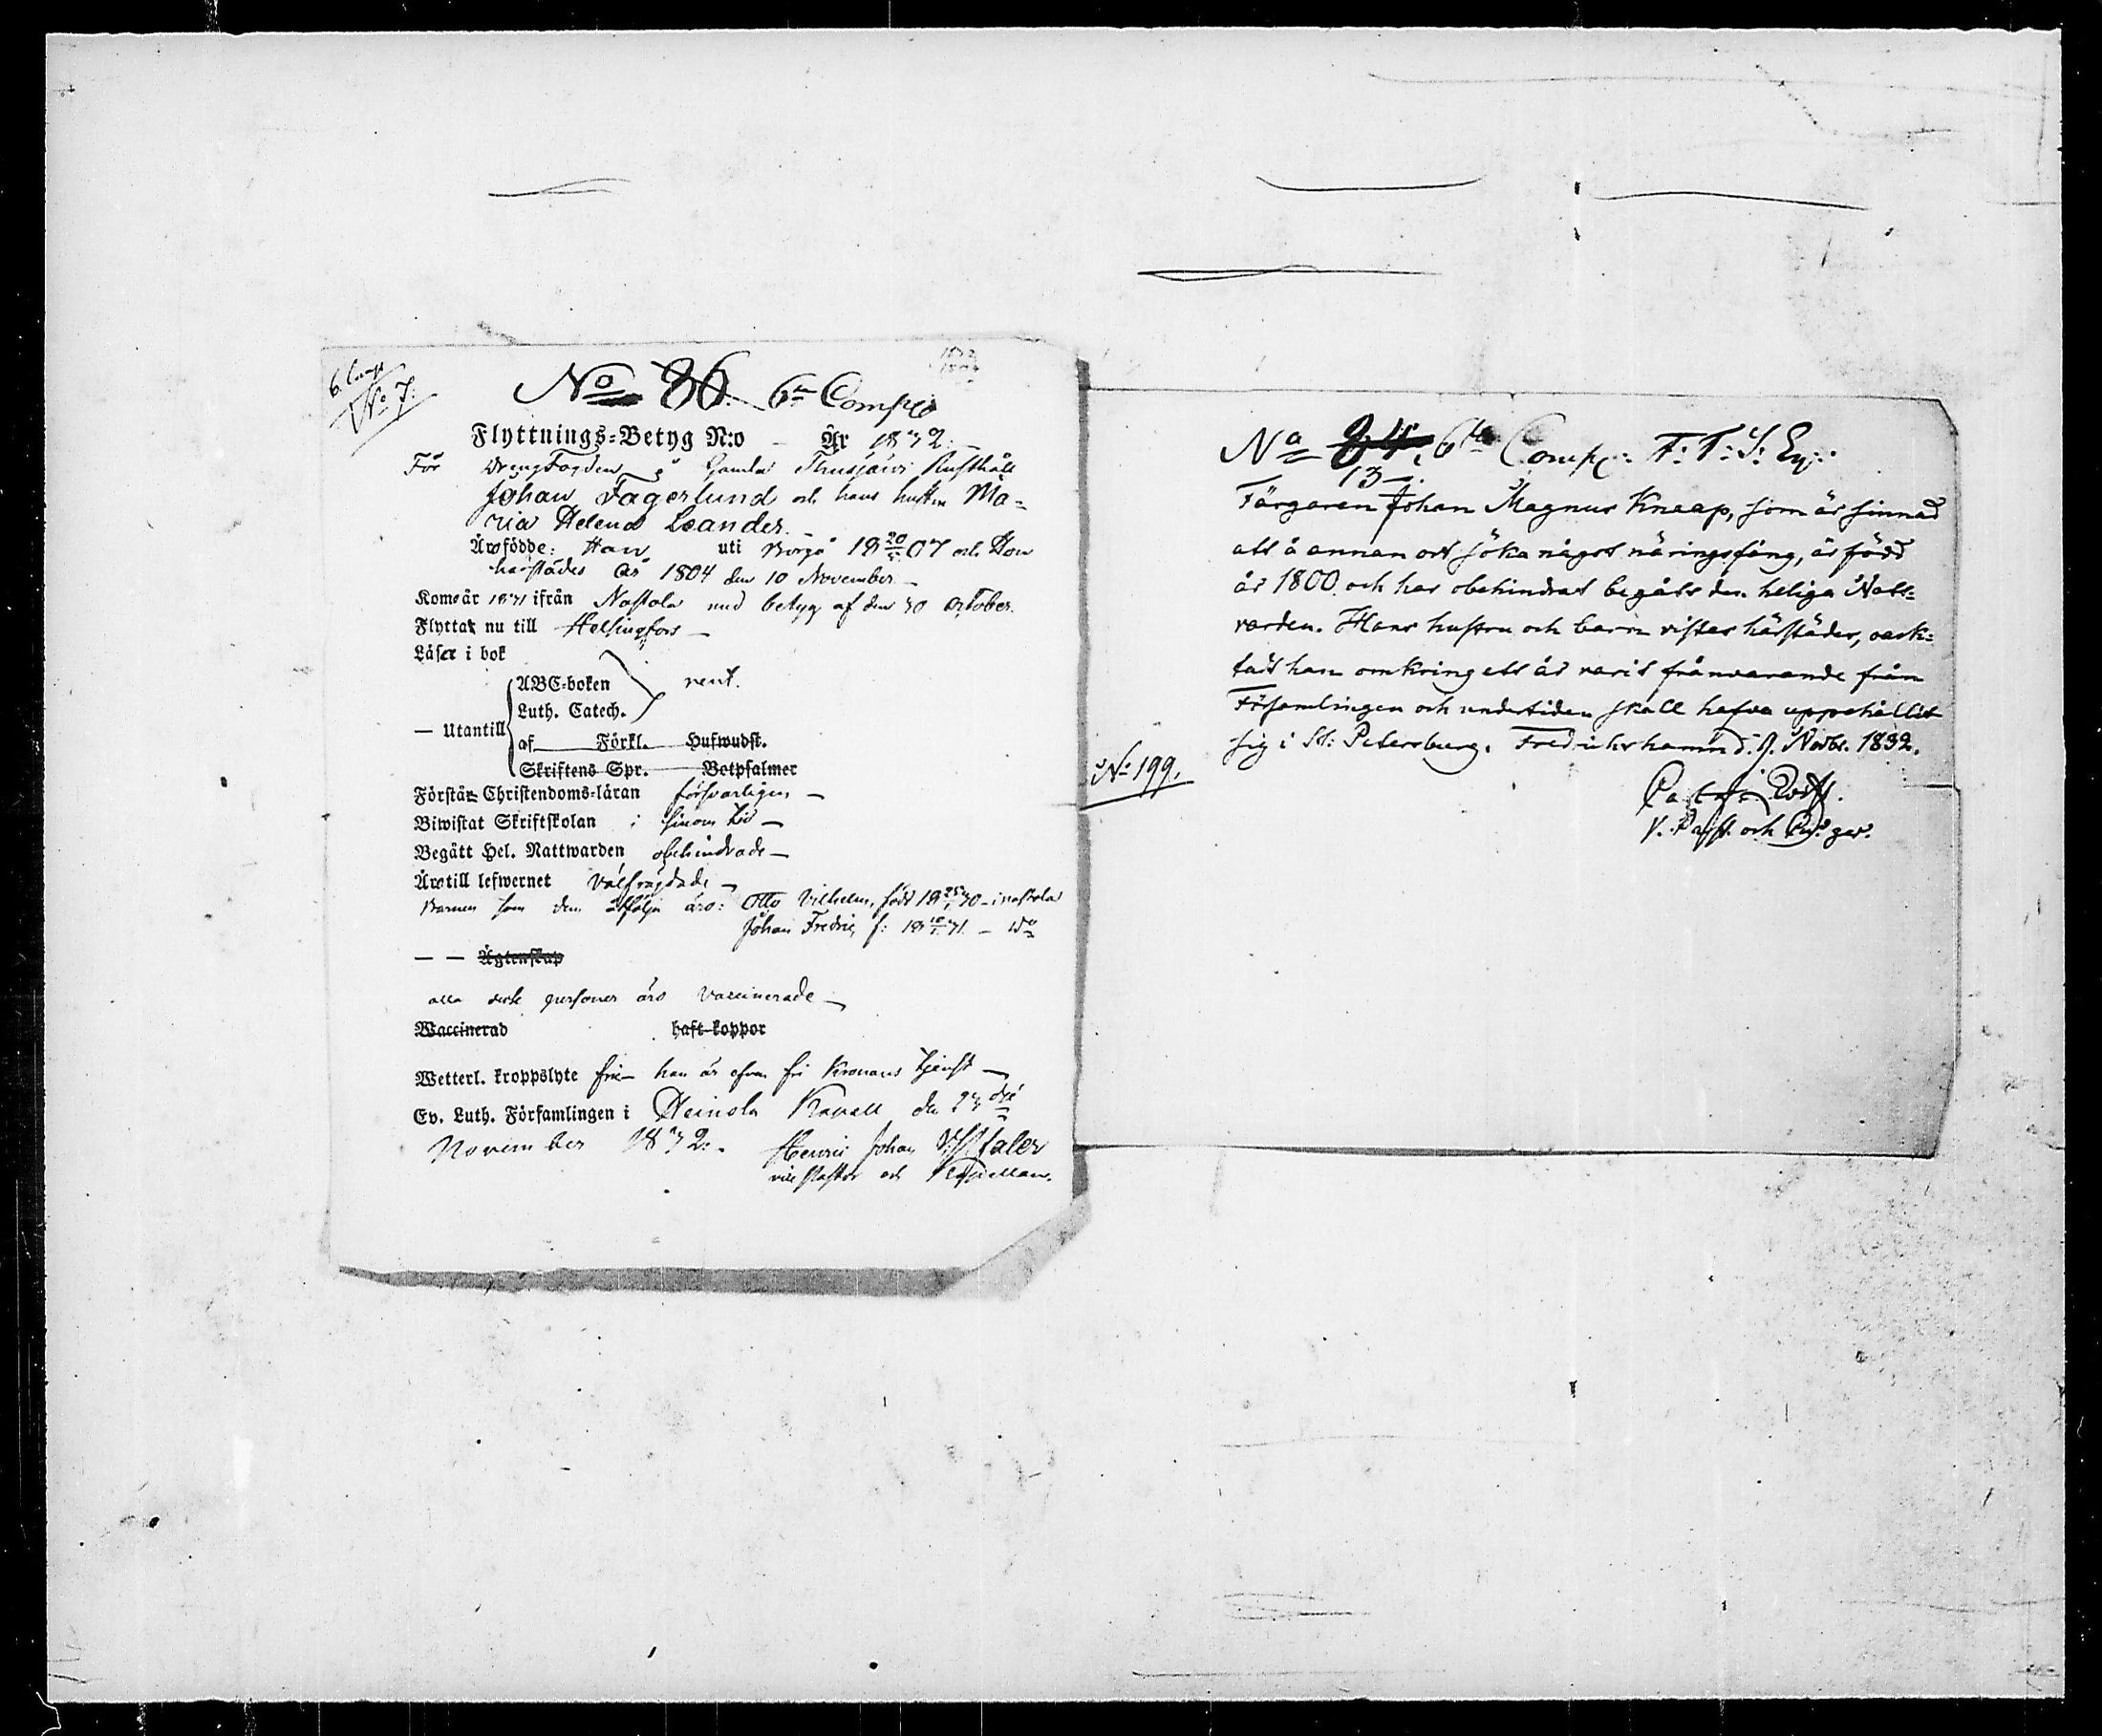 6 Comp
No 7.
No 86. 6te Comp
Flyttnings-Betyg N:o — År 1832.
För drengfogden å Gamla Rusthåll
Johan Fagerlund och hans hustru Ma=
ria Helena Leander.
Äro födde: Han uti Borgå 18 20/5 07 och Hon
härstädes år 1804 den 10 November
Komo år 1831 ifrån Nastola med betyg af den 30 October.
Flytta nu till Helsingfors
Läser i bok
ABC-boken rent.
Luth. Catech.
— Utantill
af Förkl. Hufwudst.
Skriftens Spr. Botpsalmer
Förstår Christendoms-läran försvarligen
Biwistat Skriftskolan i sinom tid
Begått Hel. Nattwarden obehindrade
Äro till lefwernet välfrägdade
Barnen som dem åtfölja äro: Otto Vilhelm, född 18 25/1 30 i Nastola
Johan Fredric, f: 18 10/7 31 — do
— — Ägtenskap
alla desse personer äro vaccinerade
Waccinerad haft koppor
Wetterl. kroppslyte fri han är äfven fri Kronans tjenst
Ev. Luth. Församlingen i Heinola Kapell den 23dje
November 1832. Henric Johan
vice Pastor och Kapellan.
No 84. 6te Comp: F: F: S: Ex:
13
Färgaren Johan Magnus Knaap, som är sinnad
att å annan ort söka något näringsfång, är född
år 1800 och har obehindrat begått den heliga Natt=
varden. Hans hustru och barn vistas härstädes, oack=
tadt han omkring ett år varit frånvarande från
Församlingen och undertiden skall hafva uppehållit
sig i St: Petersburg. Fredrikshamn d. 9. Novbr. 1832.
No 199.
V. Past. och